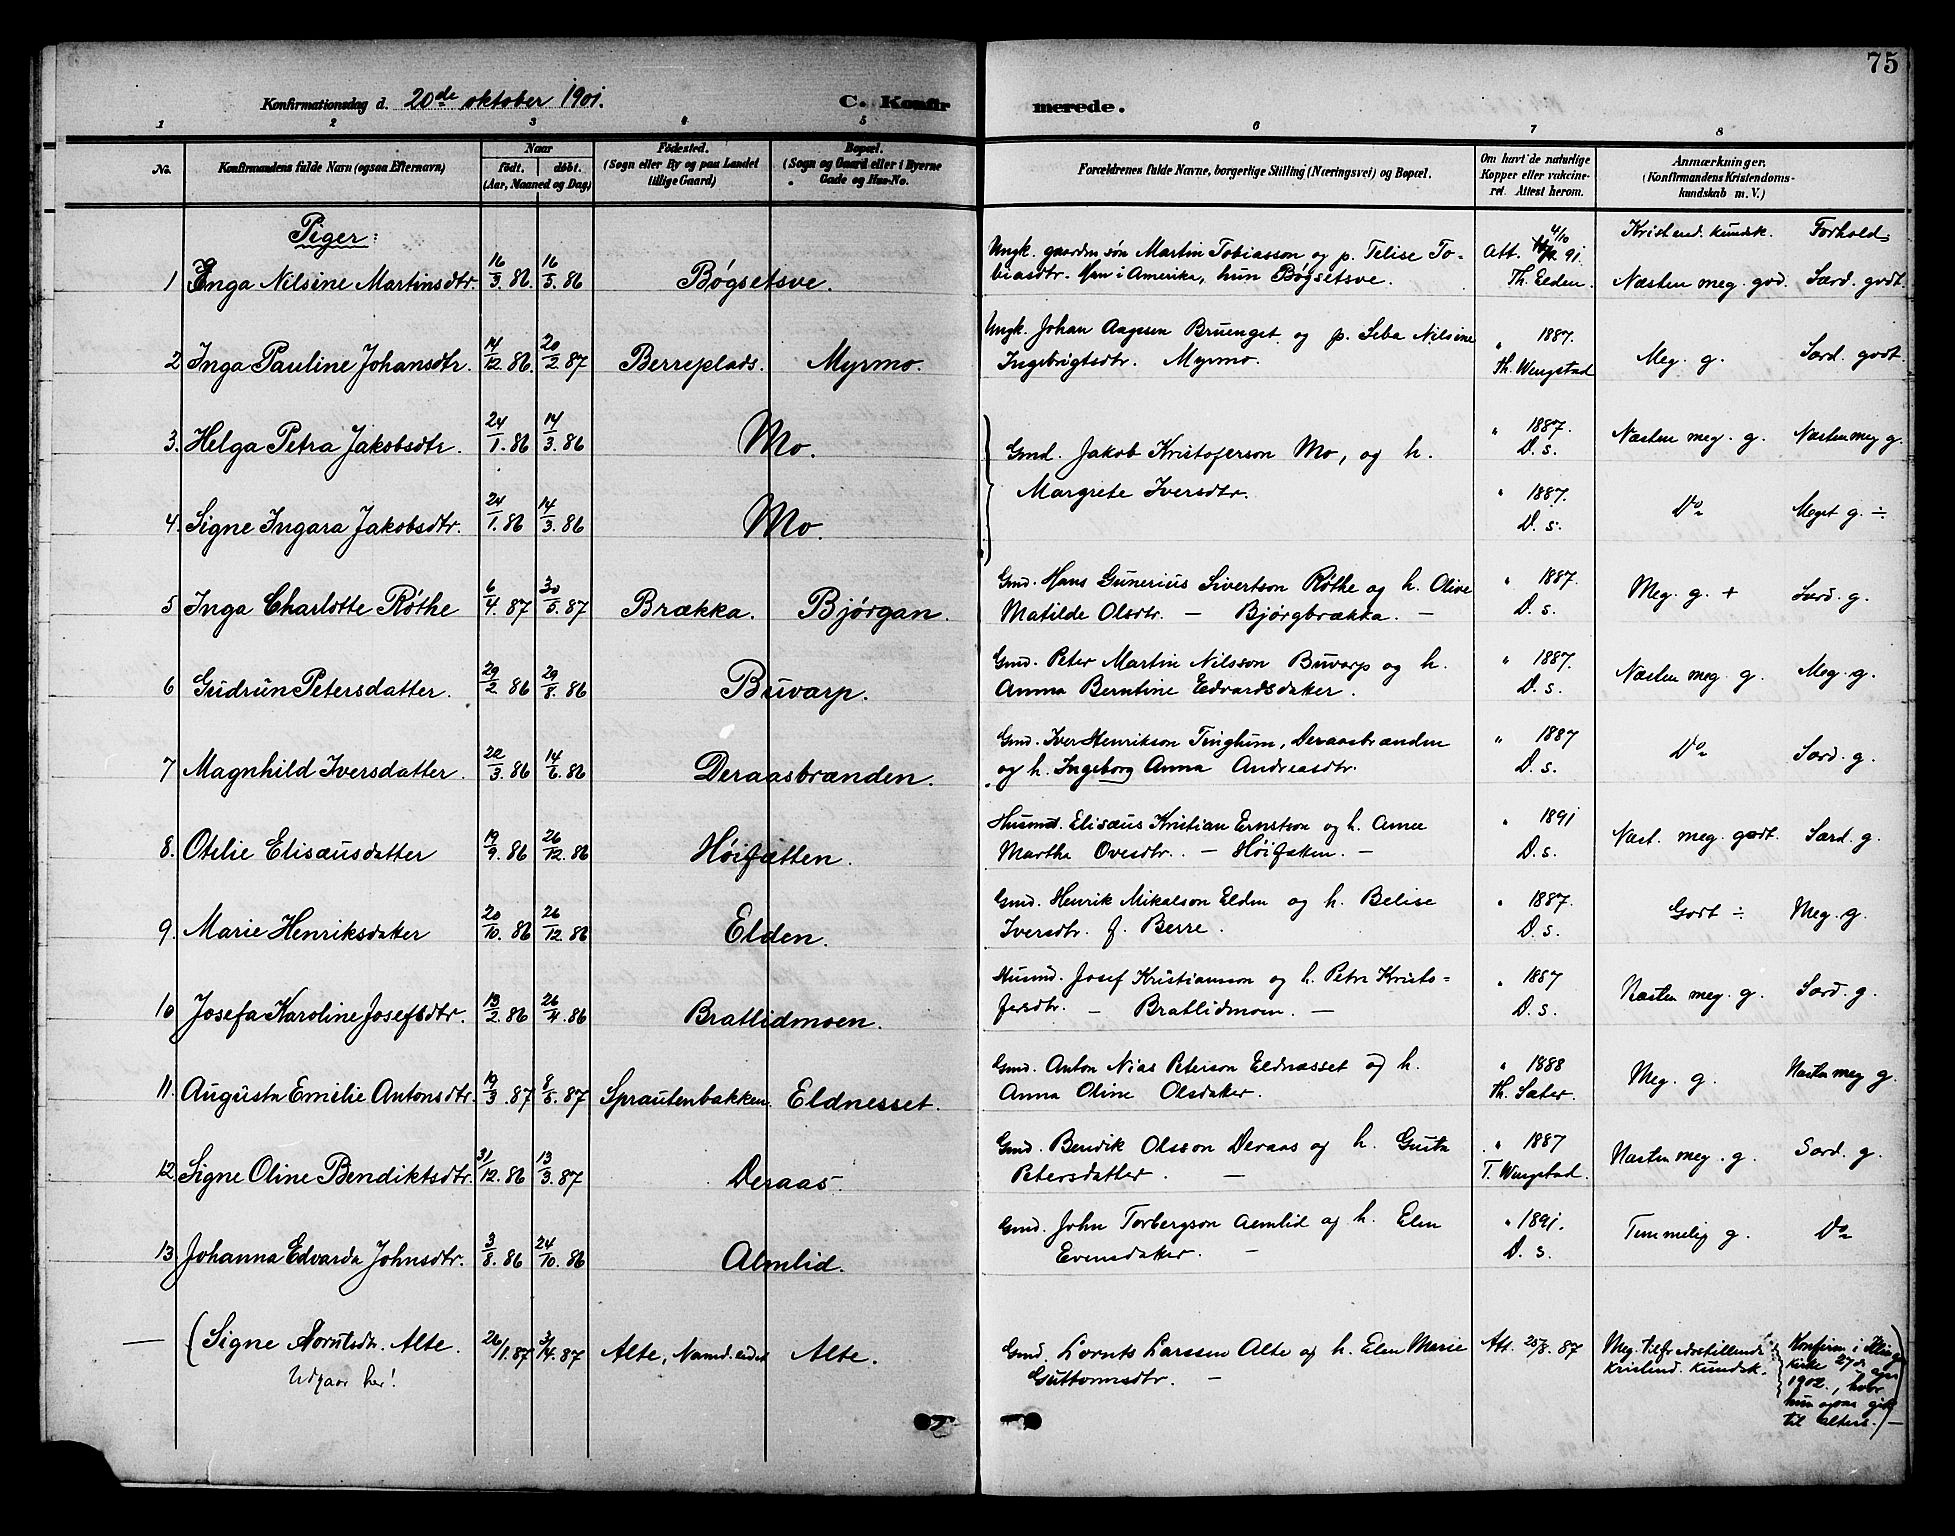 75
Konfirmationsdag d. 20de oktober 1901. C. Konfirmerede.
1 2 3 4 5 6 7 8
No. Konfirmandens fulde Navn (ogsaa Efternavn) Naar født. døbt. (Aar, Maaned og Dag) Fødested. (Sogn eller By og paa Landet tillige Gaard) Bopæl. (Sogn og Gaard eller i Byerne Gade og Hus-No. Forældrenes fulde Navne, borgerlige Stilling (Næringsvei) og Bopæl. Om havt de naturlige Kopper eller vakcineret. Attest herom. Anmærkninger. (Konfirmandens Kristendomskundskab m. V.)
Piger: Kristend. kundsk. Forhold
1 Inga Nilsine Martinsdtr. 16/3.86 16/5.86 Bøgsetsve. Ungk. gaardm.søn Martin Tobiasson og p. Telise To- Att. 4/10 91.
biasdtr. Han i Amerika, hun Bøgsetsve. Th. Elden. Næsten meg. god. Særd. godt.
2 Inga Pauline Johansdtr. 14/12.86 20/2.87 Berreplads. Myrmo. Ungk. Johan Aagesen Bruenget og p. Seba Nilsine " 1887.
Ingebrigtsdtr. Myrmo. Th. Wengstad Meg. g. Særd. godt.
3. Helga Petra Jakobsdtr. 24/1.86 14/3.86 Mo. Gmd. Jakob Kristoferson Mo, og h. " 1887. D. s. Næsten meg. g. Næsten meg g.
Margrete Iversdtr.
4. Signe Ingara Jakobsdtr. 24/1.86 14/3.86 Mo. " 1887. D. s. Do Meget g. ÷
5 Inga Charlotte Røthe 6/4.87 30/5.87 Brækka. Bjørgan. Gmd. Hans Gunerius Sivertson Røthe og h. Olive " 1887.
Matilde Olsdtr. — Bjørgbrækka. — D. s. Meg. g. + Særd. g.
6 Gudrun Petersdatter. 29/2.86 29/8.86 Buvarp. Gmd. Peter Martin Nilsson Buvarp og h. " 1887.
Anna Berntine Edvardsdatter. D. s. Næsten meg. g. Meg. g.
7 Magnhild Iversdatter. 22/3.86 14/6.86 Deraasbrænden. Gmd. Iver Henrikson Tinghum, Deraasbrænden " 1887
og h. Ingeborg Anna Andreasdtr. D. s. Do Særd. g.
8. Otelie Elisæusdatter 19/9.86 26/12.86 Høifætten. Husmd. Elisæus Kristian Ernstson og h. Anne " 1891
Martha Ovesdtr. — Høifætten. — D. s. Næst. meg. godt. Særd. g.
9. Marie Henriksdatter 20/10.86 26/12.86 Elden. Gmd. Henrik Mikalson Elden og h. Belise " 1887.
Iversdtr. f. Berre. D. s. Godt ÷ Meg. g.
10 Josefa Karoline Josefsdtr. 13/2.86 26/4.86 Bratlidmoen. Husmd. Josef Kristianson og h. Petra Kristo- " 1887
fersdtr. — Bratlidmoen. — D. s. Næsten meg. g. Særd. g.
11. Augusta Emilie Antonsdtr. 19/3.87 8/5.87 Sprautenbakken. Eldnesset. Gmd. Anton Nias Peterson Eldnesset og h. " 1888
Anna Oline Olsdatter. Th. Sæter. Meg. g. Næsten meg g.
12. Signe Oline Bendiktsdtr. 31/12.86 13/3.87 Deraas. Gmd. Bendik Olsson Deraas og h. Gusta " 1887
Petersdatter. — T. Wengstad. Næsten meg. g. Særd. g.
13. Johanna Edvarda Johnsdtr. 3/8.86 24/10.86 Almlid. Gmd. John Torbergson Almlid og h. Elen " 1891.
Evensdatter. — D. s. Temmelig g. Do
— (Signe Lorntsdtr. Alte. 26/1.87 3/4.87 Alte, Namd.eidet Alte. Gmd. Lornts Larssen Alte og h. Elen Marie Att. 25/8.87 Meg. tilfredsstillende
Guttormsdtr. — kristend. kundsk.
Udgaar her!
Konfirm. i Klinga
kirke 27de apr.
1902., hvor
hun ogsaa gik
til alters.) —